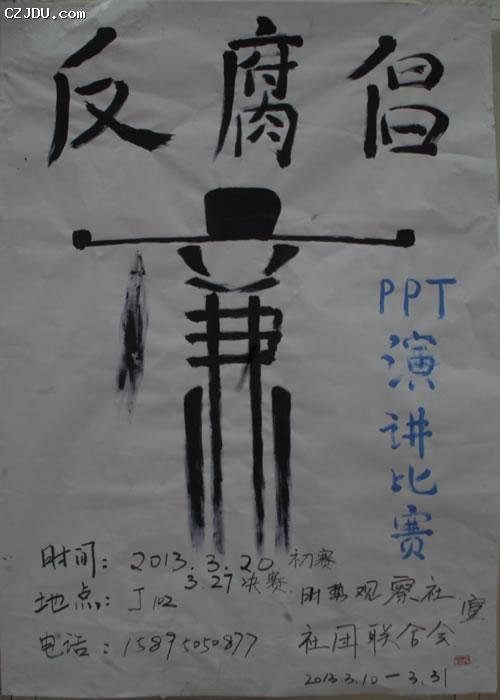 CZJDU.com
反腐倡
廉
PPT
演讲比赛
时间：2013.3.20 初赛
3.27 决赛
地点：J102
电话：15895050877
时势观察社
社团联合会
宣
2013.3.10—3.31